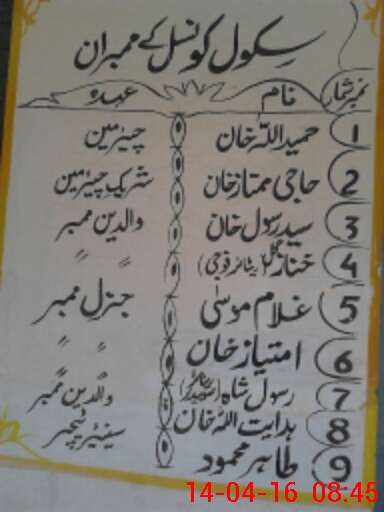 سکول کونسل کے ممبران
نمبر شمار نام عہدہ
1 حمید اللہ خان چیئرمین
2 حاجی ممتاز خان شریک چیئرمین
3 سید رسول خان والدین ممبر
4 گل (ریٹائر فوجی) " "
5 غلام موسیٰ جنرل ممبر
6 امتیاز خان " "
7 رسول شاہ والدین ممبر
8 ہدایت اللہ خان سینئیر ٹیچر
9 طاہر محمود
14-04-16 08:45